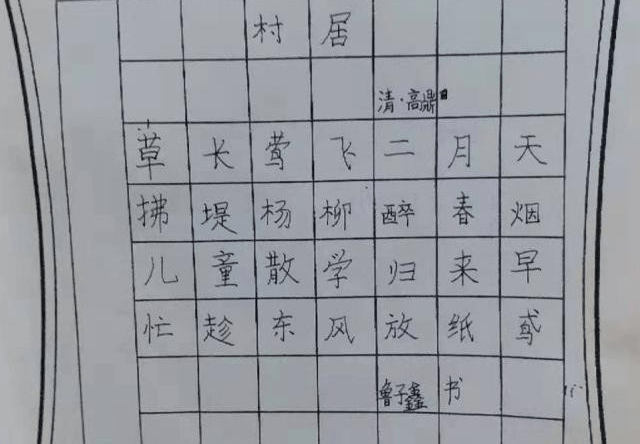 村居
清·高鼎
草长莺飞二月天
拂堤杨柳醉春烟
儿童散学归来早
忙趁东风放纸鸢
鲁子鑫 书